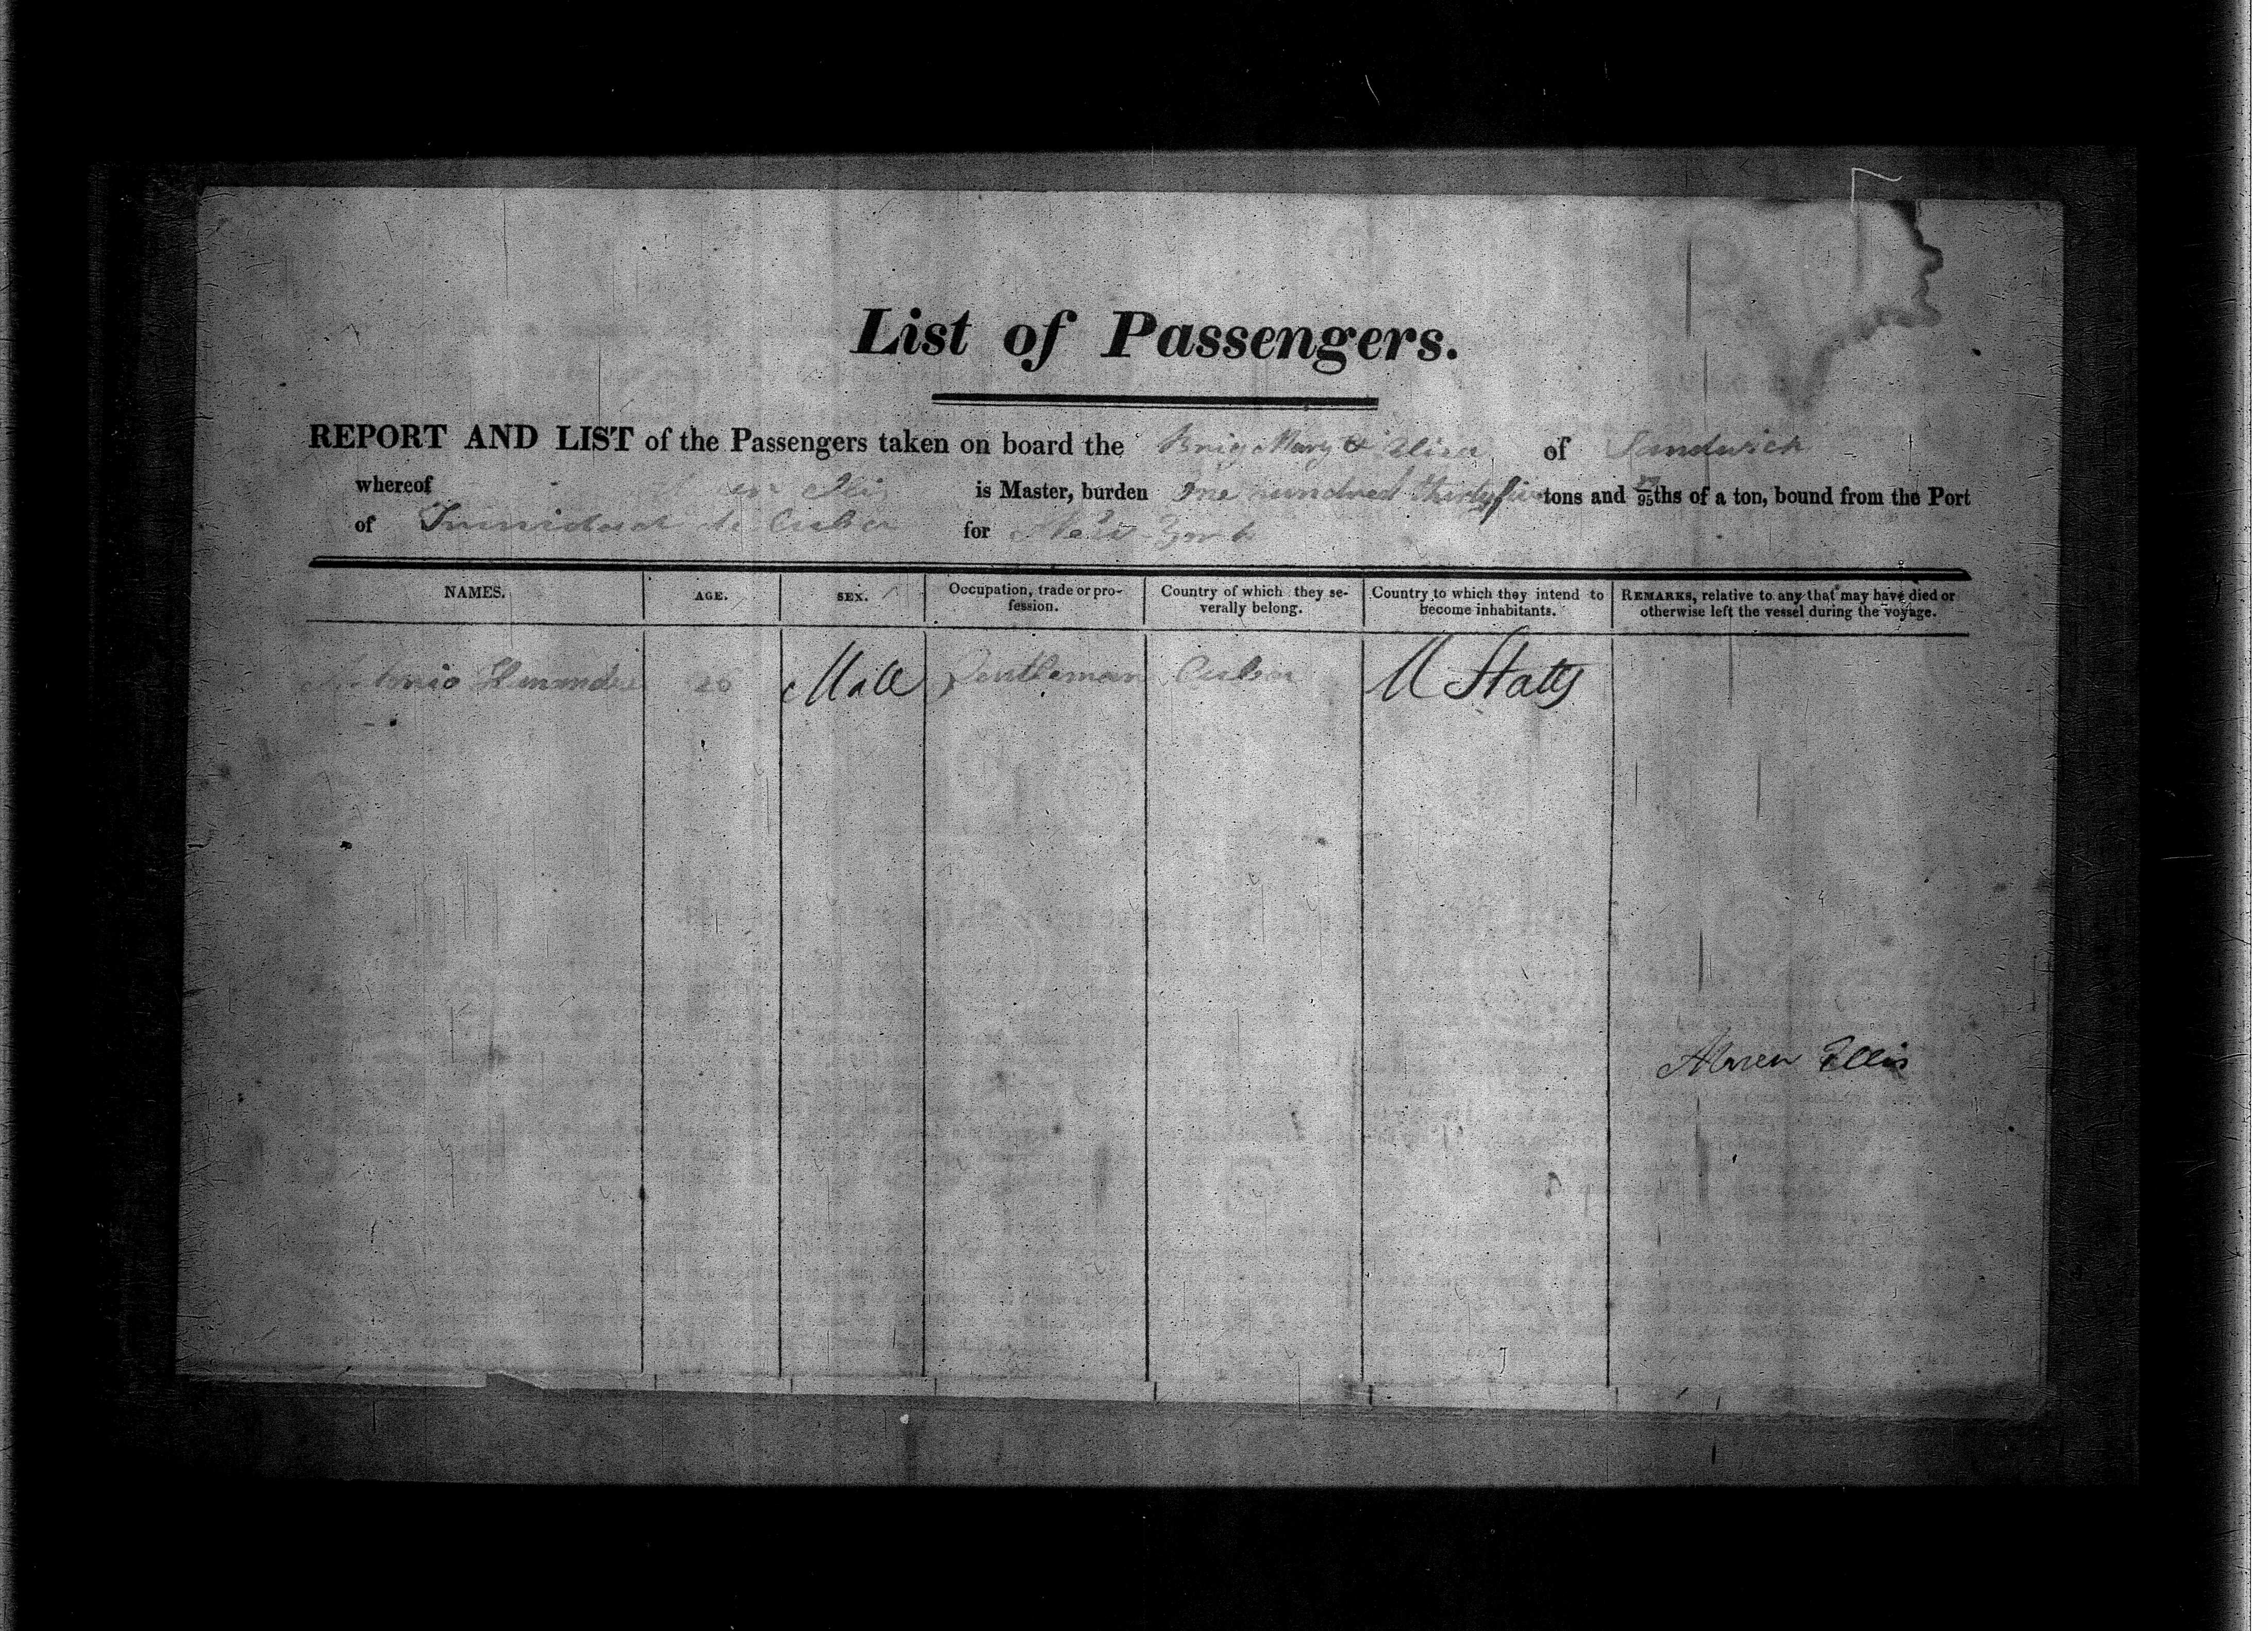 List of Passengers.
REPORT AND LIST of the Passengers taken on board the Brig Mary & Eliza of Sandwich
whereof is Master, burden One hundred thirty five tons and 95ths of a ton, bound from the Port
of Trinidad de Cuba for New-York
NAMES. AGE. SEX. Occupation, trade or pro- Country of which they se- Country to which they intend to REMARKS, relative to any that may have died or
fession. verally belong. become inhabitants. otherwise left the vessel during the voyage.
Antonio 26 Male Gentleman Cuba U States
Ellis